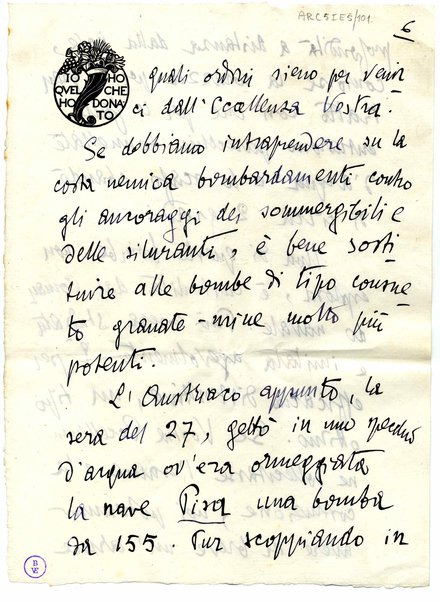 ARC5IES/101
6
IO HO
QVEL CHE
HO DONA
TO
quali ordini sieno per venir
ci dall'Eccellenza Vostra.
Se dobbiamo intraprendere su la
costa nemica bombardamenti contro
gli ancoraggi dei sommergibili e
delle siluranti, è bene sosti
tuire alle bombe di tipo consue
to granate-mine molto più
potenti.
L'Austriaco appunto, la
sera del 27, gettò in uno specchio
d'acqua ov'era ormeggiata
la nave Pisa una bomba
da 155. Pur scoppiando in
B
VE